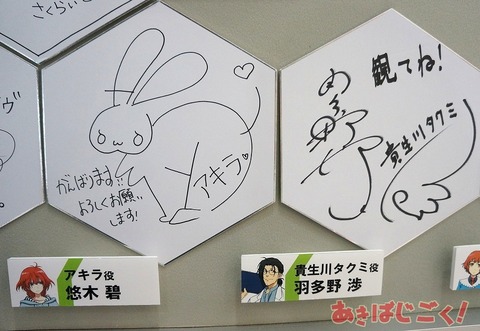 さくらい
がんばります!!
よろしくお願い
します!
アキラ
観てね!
貴生川タクミ
アキラ役
悠木 碧
貴生川タクミ役
羽多野 渉
あきばじごく!